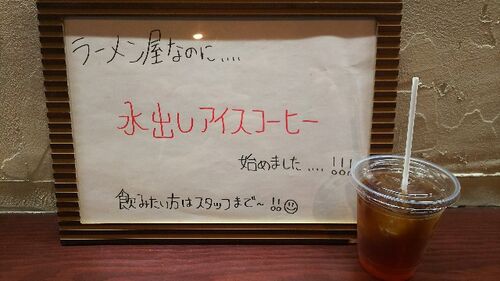 ラーメン屋なのに....
水出しアイスコーヒー
始めました....!!!
飲みたい方はスタッフまで~!!☺